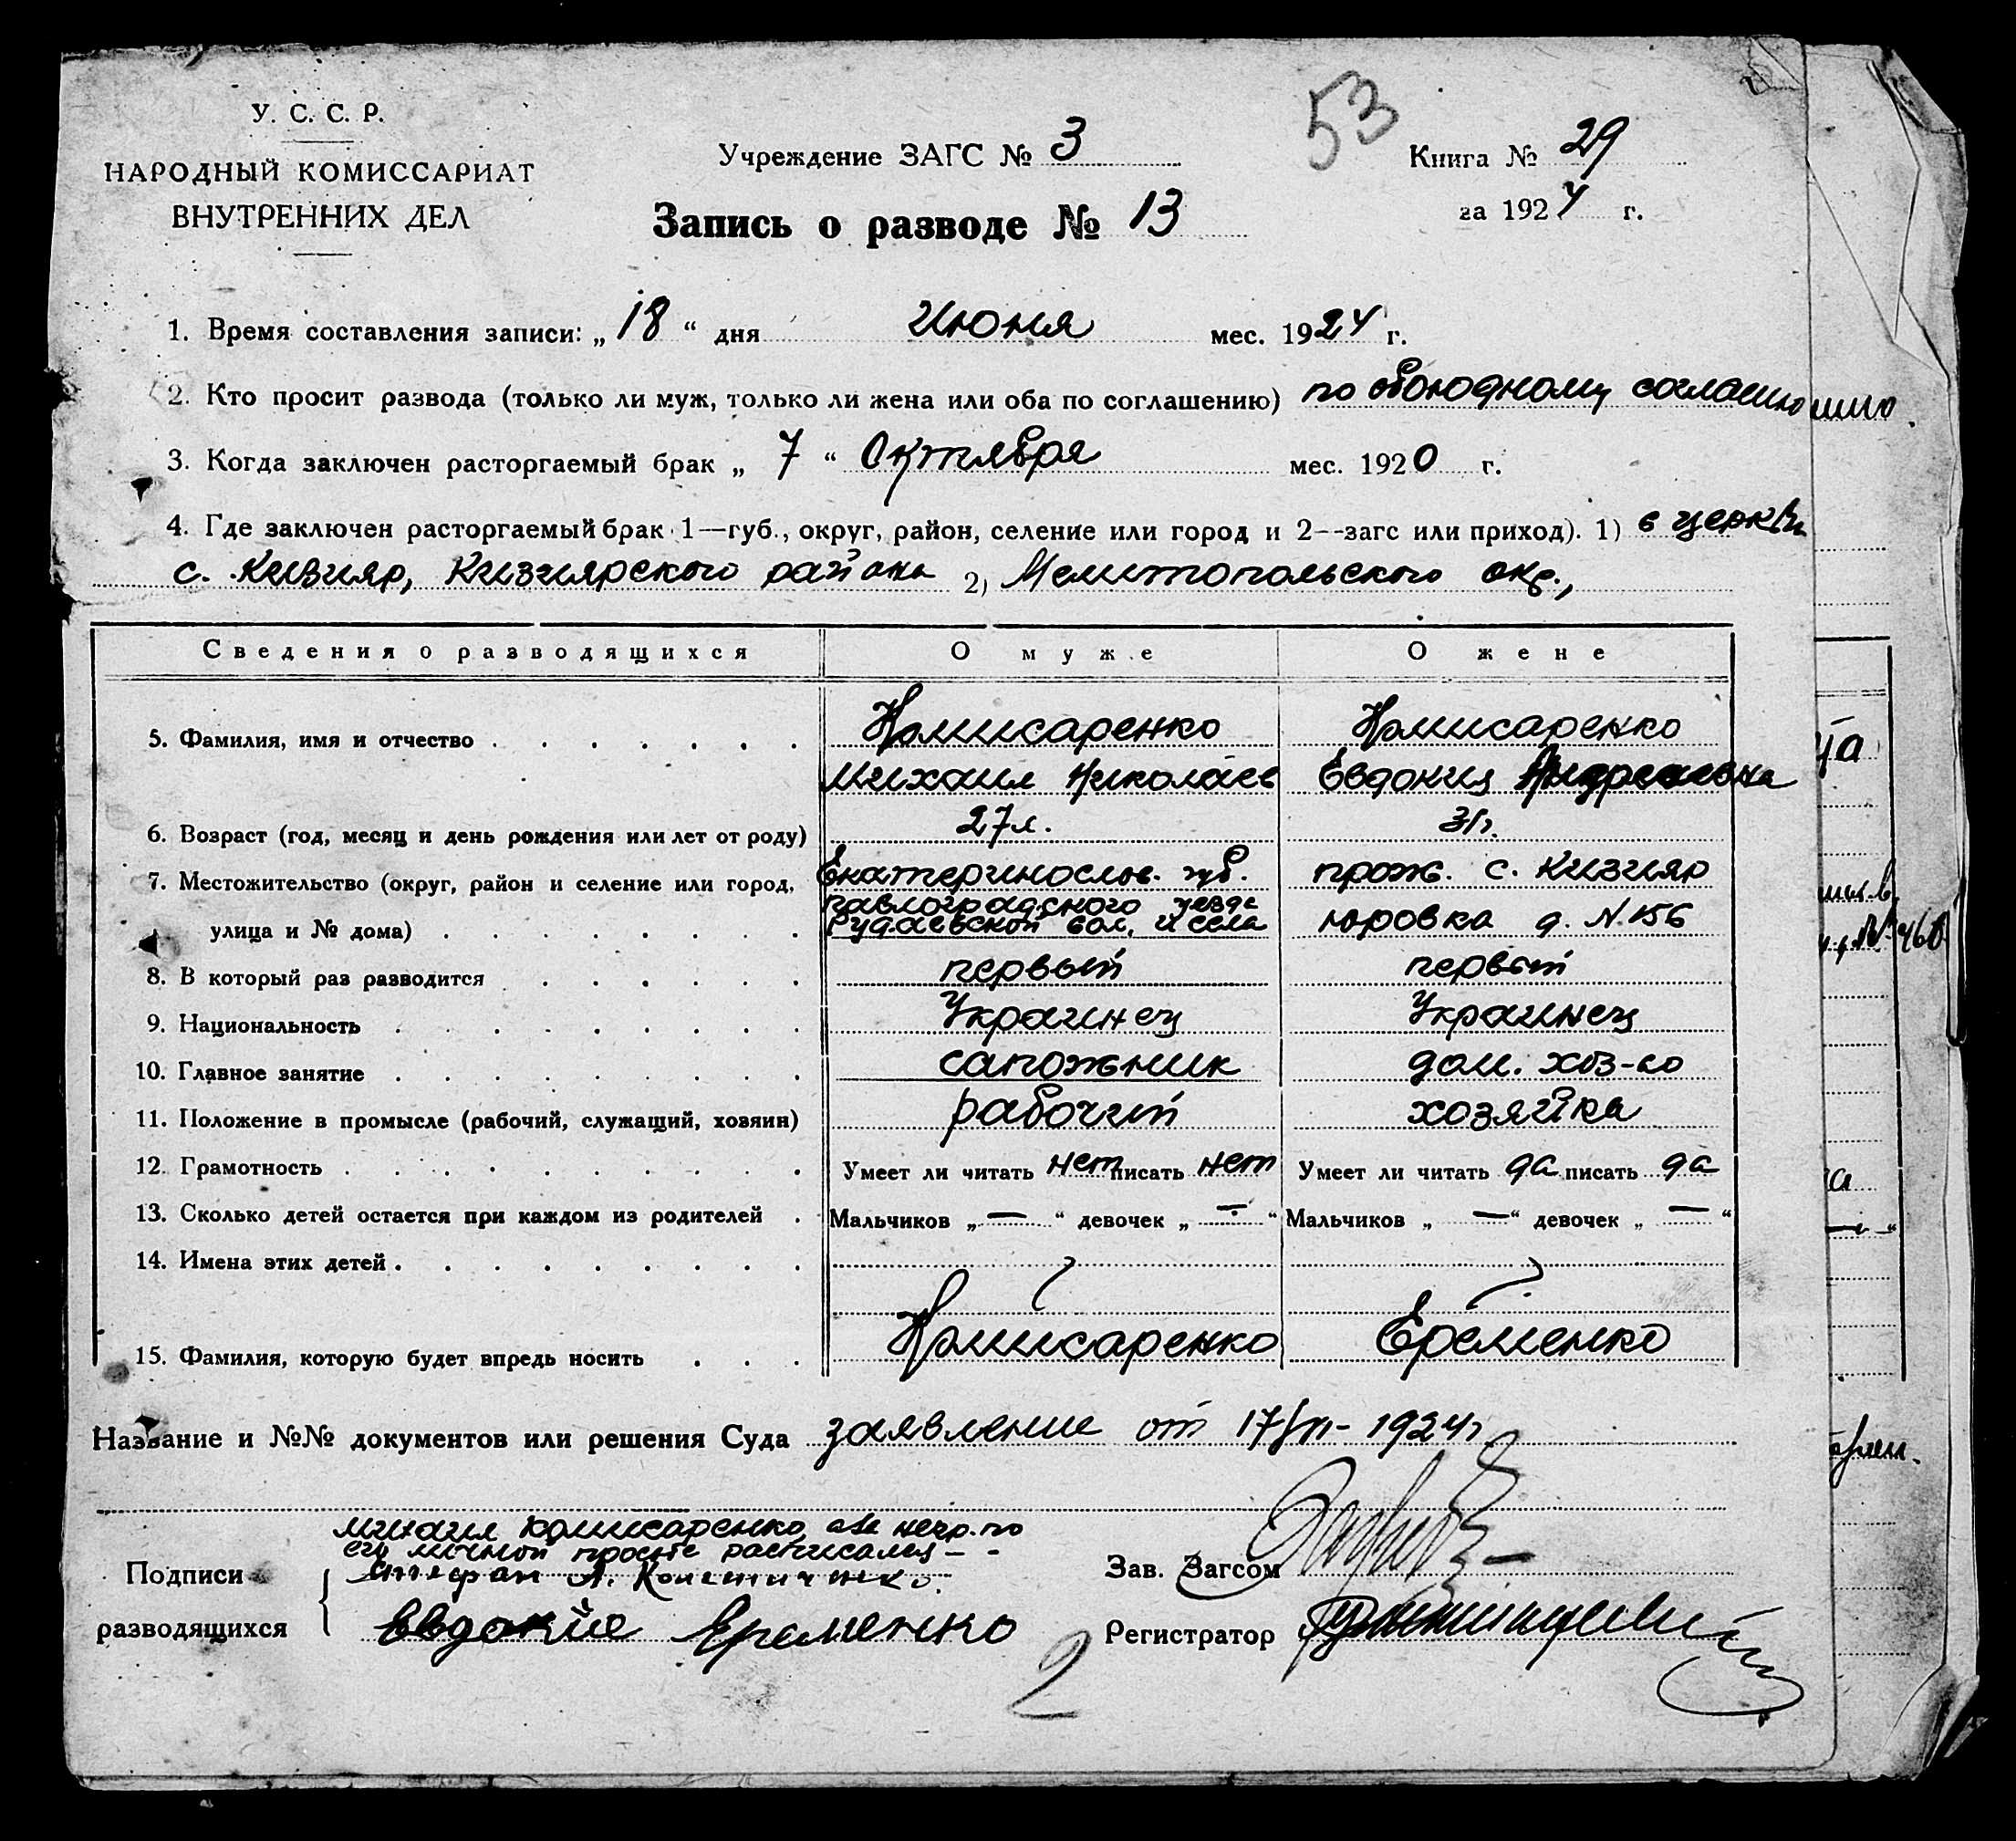 53
У. С. С. Р.
НАРОДНЫЙ КОМИССАРИАТ
ВНУТРЕННИХ ДЕЛ
Учреждение ЗАГС № 3
Книга № 29
за 1924 г.
Запись о разводе № 13
1. Время составления записи: „18“ дня Июня мес. 1924 г.
2. Кто просит развода (только ли муж, только ли жена или оба по соглашению) по обоюдному
3. Когда заключен расторгаемый брак „7“ Октября мес. 1920 г.
4. Где заключен расторгаемый брак 1—губ., округ, район, селение или город и 2--загс или приход). 1) в церкви
с. Кизияр, Кизиярского района 2) Мелитопольского окр.,
Сведения о разводящихся О муже О жене
5. Фамилия, имя и отчество Комисаренко Комисаренко
Михаил Николаев Евдокия Андреевна
6. Возраст (год, месяц и день рождения или лет от роду) 27л. 31г.
7. Местожительство (округ, район и селение или город, Екатеринослов. губ. прож. с. Кизияр
Павлоградского уезда
улица и № дома) вол. юровка д. N. 156
8. В который раз разводится первый первый
9. Национальность Украинец Украинец
10. Главное занятие сапожник дом. хоз-во
11. Положение в промысле (рабочий, служащий, хозяин) рабочий хозяйка
12. Грамотность Умеет ли читать нет писать нет Умеет ли читать да писать да
13. Сколько детей остается при каждом из родителей Мальчиков „—“ девочек „—“ Мальчиков „—“ девочек „—“
14. Имена этих детей
15. Фамилия, которую будет впредь носить Комисаренко Еременко
Название и №№ документов или решения Суда заявление от 17/VI- 1924г
Михаил Комисаренко, а за негр. по
его личной просьбе расписался -
Подписи Стефан А.
разводящихся Евдокие Еременко
Зав. Загсом
Регистратор
2